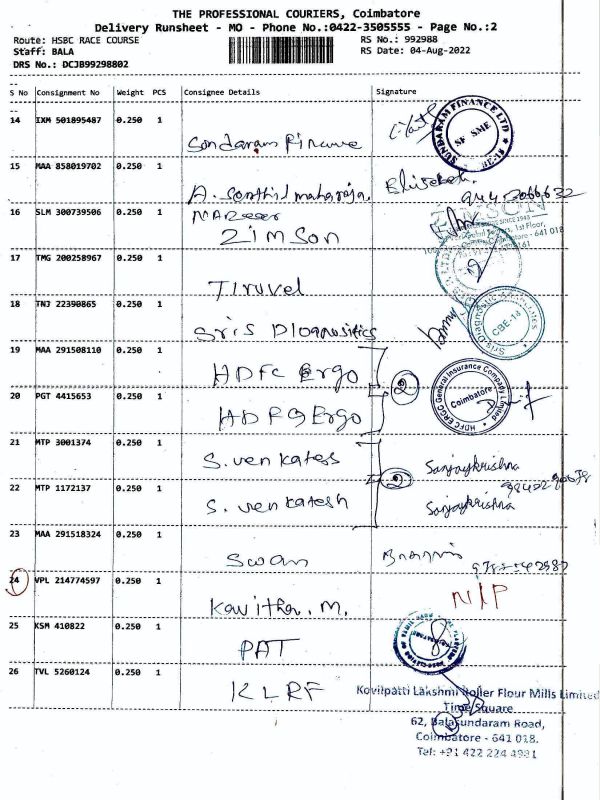 THE PROFESSIONAL COURIERS, Coimbatore
Delivery Runsheet - MO - Phone No.:0422-3505555 - Page No.:2
Route: HSBC RACE COURSE RS No.: 992988
Staff: BALA RS Date: 04-Aug-2022
DRS No.: DCJB99298802
S No Consignment No Weight PCS Consignee Details Signature
14 IXM 501895487 0.250 1 Sondaram Finance
SUNDARAM FINANCE LTD
SF SME
15 MAA 858019702 0.250 1 A. Senthil maharaja
16 SLM 300739506 0.250 1 ZIMSON
1st Floor,
641 018
17 TMG 200258967 0.250 1 Tiruvel
18 TNJ 22390865 0.250 1 Sris Diognositics
CBE-18
19 MAA 291508110 0.250 1 HDFC Ergo
2
HDFC ERGO General Insurance Company Limited
Coimbatore
20 PGT 4415653 0.250 1 HDFC Ergo
21 MTP 3001374 0.250 1 S. venkatess Sanjaykrishna
2
22 MTP 1172137 0.250 1 S. venkatesh Sanjaykrishna
23 MAA 291518324 0.250 1 Swan
24 VPL 214774597 0.250 1 Kavitha. M. N/P
25 KSM 410822 0.250 1 PAT
26 TVL 5260124 0.250 1 KLRF
Kovilpatti Lakshmi Roller Flour Mills Limited
Time Square
62, Balasundaram Road,
Coimbatore - 641 018.
Tel: +91 422 224 4981